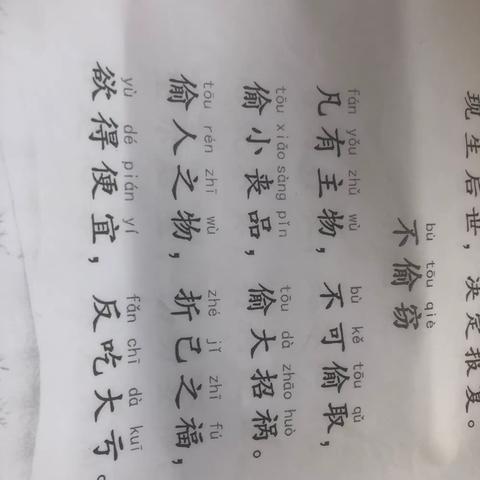 现生后世，决定报复。
bù tōu qiè
不偷窃
fán yǒu zhǔ wù bù kě tōu qǔ
凡有主物，不可偷取，
tōu xiǎo sàng pǐn tōu dà zhāo huò
偷小丧品，偷大招祸。
tōu rén zhī wù zhé jǐ zhī fú
偷人之物，折己之福，
yù dé pián yí fǎn chī dà kuī
欲得便宜，反吃大亏。